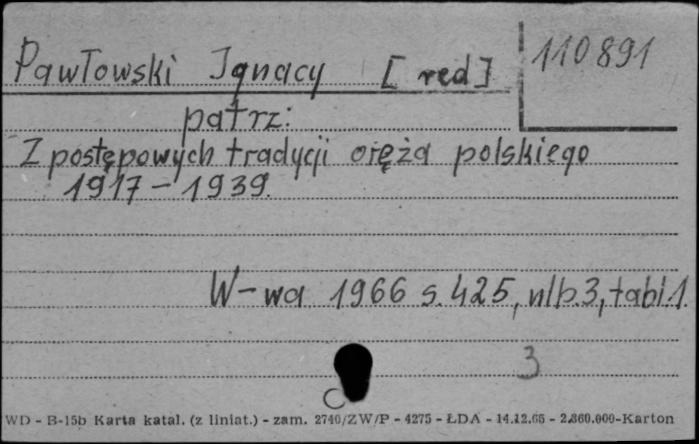 Pawłowski Ignacy [red]
110891
patrz:
Z postępowych tradycji oręża polskiego
1917-1939.
W-wa 1966 s. 425, nlb. 3, tabl. 1.
3
WD - B-15b Karta katal. (z liniat.) - zam. 2740/ZW/P - 4275 - ŁDA - 14.12.65 - 2.860.000-Karton